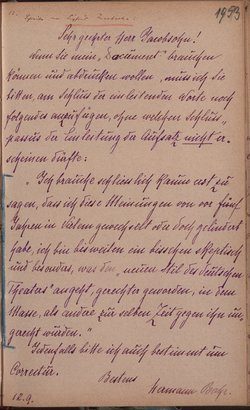 1953
Sehr geehrter Herr Jacobsohn!
Wenn Sie mein „Document" brauchen
können und abdrucken wollen, muss ich Sie
bitten, am Schluss der einleitenden Worte noch
folgendes anzufügen, ohne welchen Schluss-
passus der Einleitung der Aufsatz nicht er-
scheinen dürfte:
„Ich brauche schliesslich kaum erst zu
sagen, dass ich diese Meinungen von vor fünf
Jahren in Vielem gewechselt oder doch gelindert
habe, ich bin bisweilen ein bisschen skeptisch
und besonders, was den „neuen Stil des deutschen
Theaters" angeht, gerechter geworden, in dem
Masse, als andere zur selben Zeit gegen ihn un-
gerecht wurden."
Jedenfalls bitte ich auch bestimmt um
Correctur.
Bestens
Hermann Bahr
12.9.